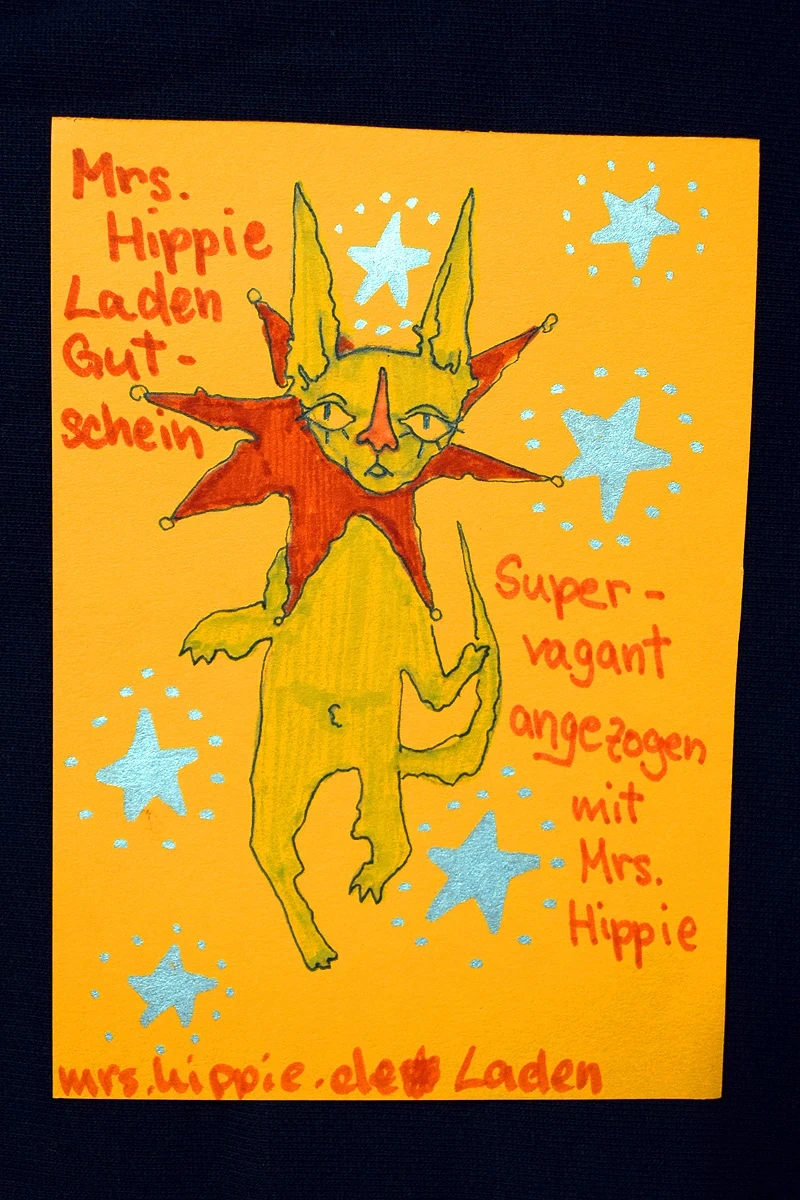 Mrs.
Hippie
Laden
Gut-
schein
Super-
vagant
angezogen
mit
Mrs.
Hippie
mrs.hippie.de Laden